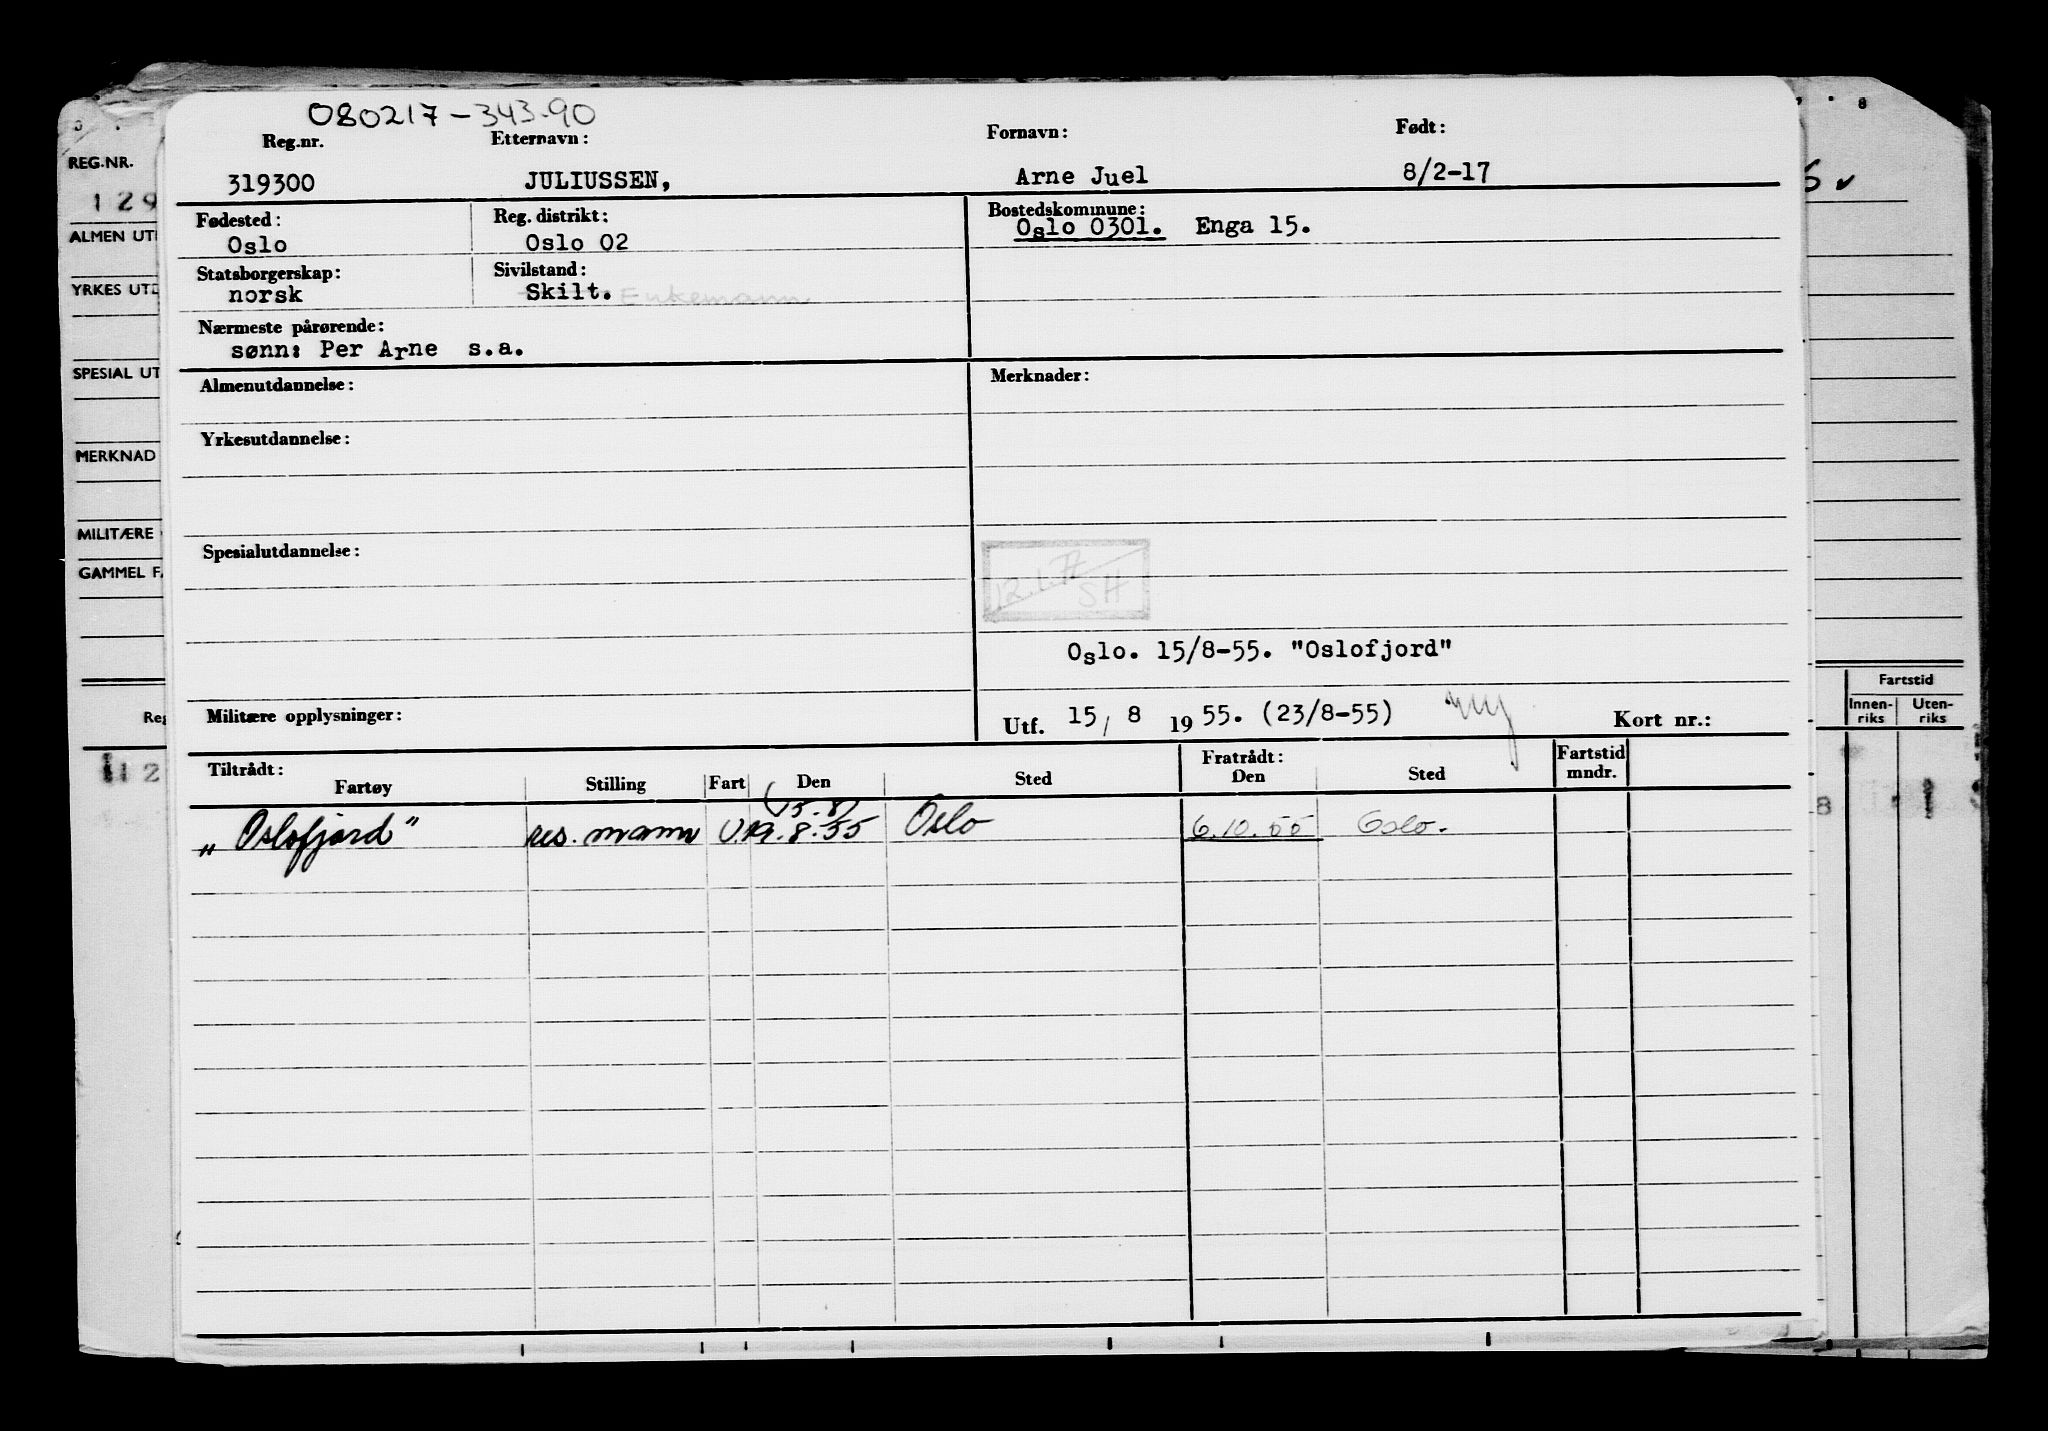 080217-343.90
Reg.nr. Etternavn: Fornavn: Født:
319300 JULIUSSEN, Arne Juel 8/2-17
Fødested: Reg. distrikt: Bostedskommune:
Oslo Oslo 02 Oslo 0301. Enga 15.
Statsborgerskap: Sivilstand:
norsk Skilt. Enkemann
Nærmeste pårørende:
sønn: Per Arne s.a.
Almenutdannelse: Merknader:
Yrkesutdannelse:
Spesialutdannelse:
12.1.77
SH
Oslo. 15/8-55. "Oslofjord"
Militære opplysninger: Utf. 15/ 8 1955. (23/8-55) Kort nr.:
Tiltrådt: Fratrådt: Fartstid
Fartøy Stilling Fart Den Sted Den Sted mndr.
(15.8)
„Oslofjord" res. mann U. 19.8.55 Oslo 6.10.55 Oslo.
REG.NR.
129
ALMEN UT
YRKES UTD
SPESIAL UT
MERKNAD
MILITÆRE
GAMMEL FA
Reg
Fartstid
Innen-riks Uten-riks